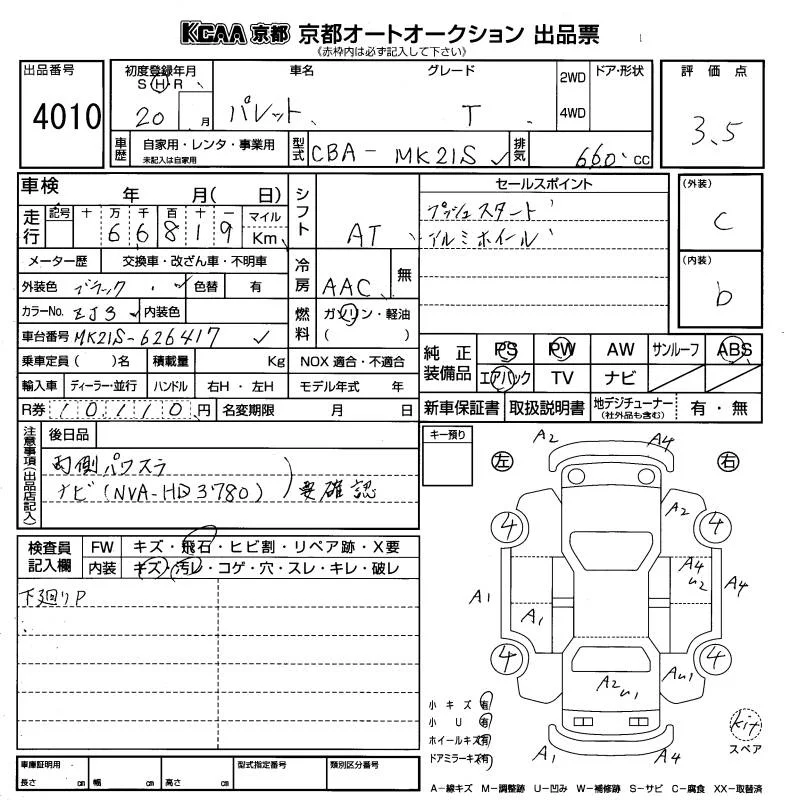 KCAA 京都 京都オートオークション 出品票
《赤枠内は必ず記入して下さい》
出品番号
4010
初度登録年月
S H R
20 月
車名
パレット
グレード
T
2WD
4WD
ドア・形状
評価点
3.5
車歴
自家用・レンタ・事業用
未記入は自家用
型式
CBA-MK21S
排気
660 cc
車検 年 月( 日)
走行
記号 十 万 千 百 十 一
6 6 8 1 9
マイル
Km
シフト
AT
メーター歴 交換車・改ざん車・不明車
冷房
AAC
無
外装色 ブラック 色替 有
カラーNo. ZJ3 内装色
燃料
ガソリン・軽油
( )
車台番号 MK21S-626417
乗車定員( )名 積載量 Kg NOX 適合・不適合
輸入車 ディーラー・並行 ハンドル 右H・左H モデル年式 年
R券 10110円 名変期限 月 日
セールスポイント
プッシュスタート
アルミホイール
(外装)
C
(内装)
b
純正装備品
PS PW AW サンルーフ ABS
エアバック TV ナビ
新車保証書 取扱説明書 地デジチューナー (社外品も含む) 有・無
注意事項(出品店記入)
後日品
両側パワスラ
ナビ(NVA-HD3780)
要確認
キー預り
検査員記入欄
FW キズ・飛石・ヒビ割・リペア跡・X要
内装 キズ・汚レ・コゲ・穴・スレ・キレ・破レ
下廻りP
左
右
A2
A4
A2
4
4
A1
A1
A4
U2
A4
4
4
A2 U1
AU1
A1
A4
小キズ(有)
小U(有)
ホイールキズ(有)
ドアミラーキズ(有)
kit
スペア
車庫証明用
長さ cm 幅 cm 高さ cm
型式指定番号
類別区分番号
A-線キズ M-調整跡 U-凹み W-補修跡 S-サビ C-腐食 XX-取替済